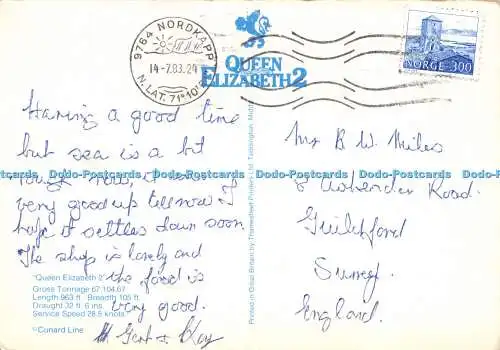 9764 NORDKAPP
14-7.83.24
N. LAT. 71°10'
QUEEN
ELIZABETH 2
NORGE 300
Having a good time
but sea is a bit
rough now, it was
very good up till now I
hope it settles down soon.
The ship is lovely and
the food is
very good.
Gert & Kay
"Queen Elizabeth 2"
Gross Tonnage 67,104.67
Length 963 ft Breadth 105 ft.
Draught 32 ft. 6 ins.
Service Speed 28.5 knots
©Cunard Line
Printed in Great Britain by Thomasfleet Printers Ltd. Teddington, Middx
Mr B W Miles
Road.
Guildford
Surrey.
England.
Dodo-Postcards Dodo-Postcards Dodo-Postcards Dodo-Postcards Dodo-Postcards Dodo-Postcards